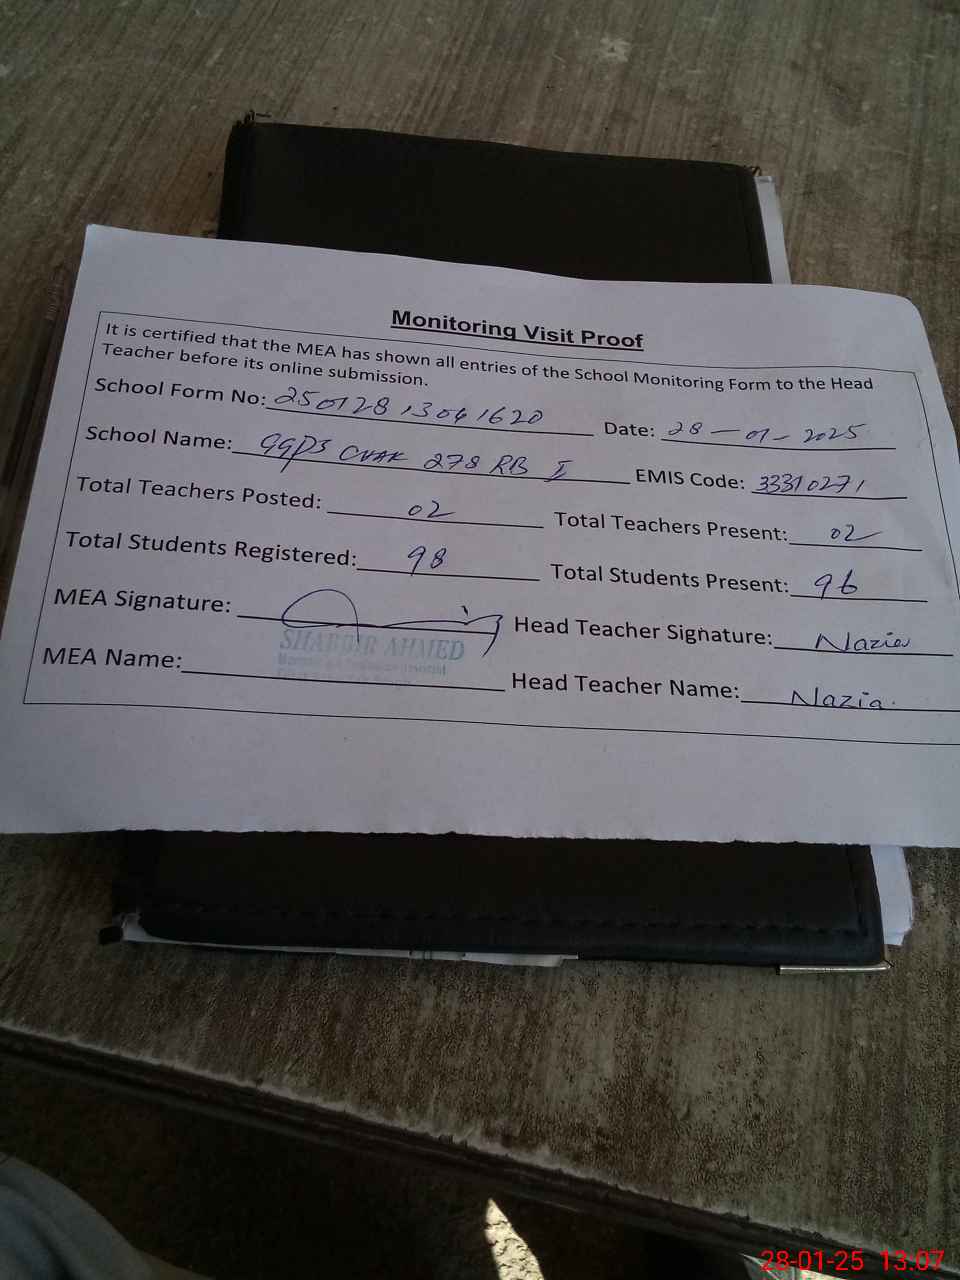 Monitoring Visit Proof
It is certified that the MEA has shown all entries of the School Monitoring Form to the Head
Teacher before its online submission.
School Form No: 25012813041620 Date: 28-01-2025
School Name: GGPS CHAK 278 RB I EMIS Code: 33310271
Total Teachers Posted: 02 Total Teachers Present: 02
Total Students Registered: 98 Total Students Present: 96
MEA Signature: Head Teacher Signature: Nazia
SHABBIR AHMED
MEA Name: Head Teacher Name: Nazia.
28-01-25 13.07